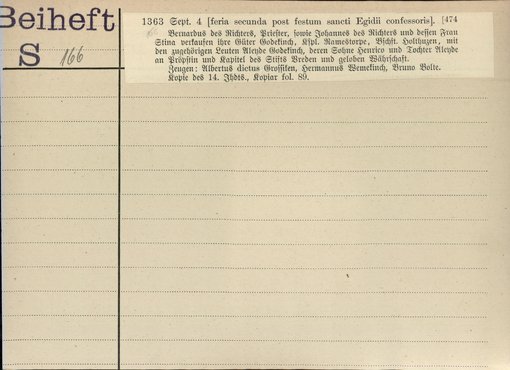 Beiheft
S 166
1363 Sept. 4 [feria secunda post festum sancti Egidii confessoris]. [474
Bernardus des Richters, Priester, sowie Johannes des Richters und dessen Frau
Stina verkaufen ihre Güter Godekinch, Kspl. Ramestorpe, Bschft. Holthuzen, mit
den zugehörigen Leuten Aleyde Godekinch, deren Sohne Henrico und Tochter Aleyde
an Pröpstin und Kapitel des Stifts Vreden und geloben Währschaft.
Zeugen: Albertus dictus Grossiken, Hermannus Wemekinch, Bruno Bolte.
Kopie des 14. Jhdts., Kopiar fol. 89.